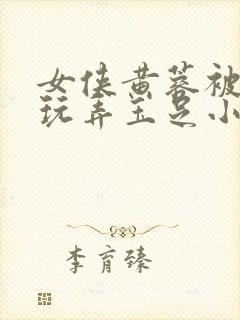 女侠黄蓉被
玩弄玉足小
李育臻